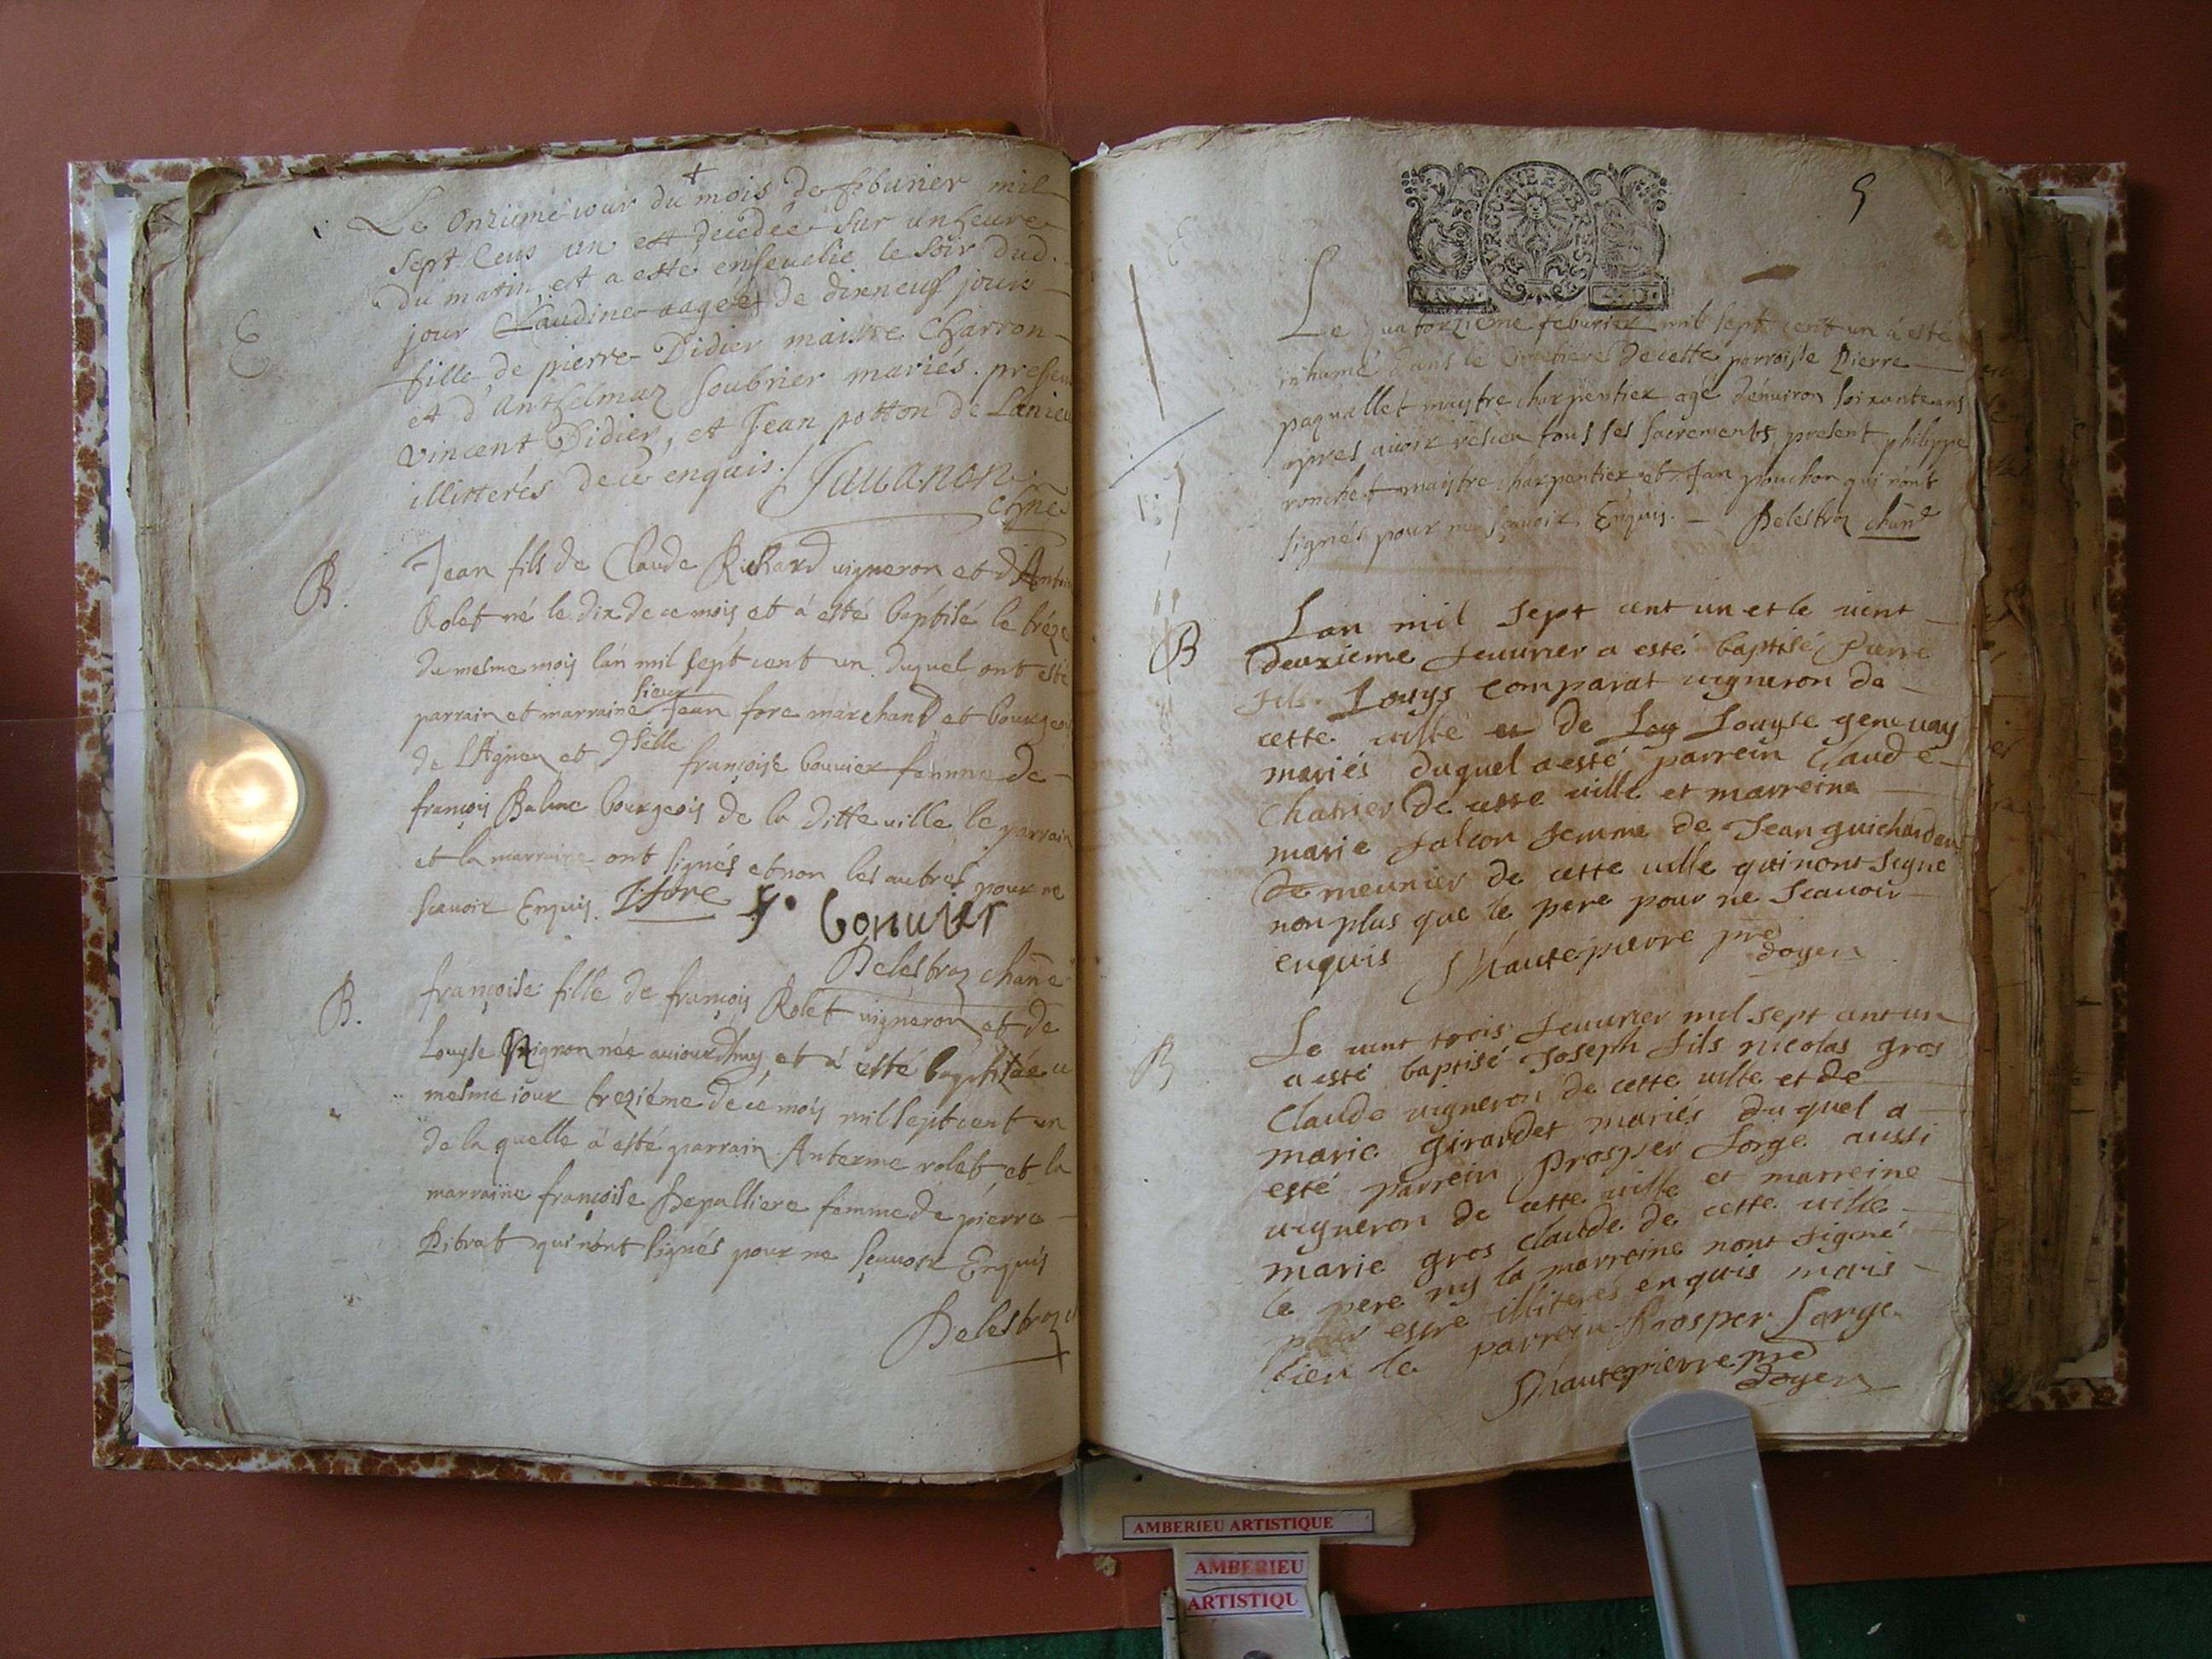 Le Onzieme iour du mois de feburier mil
sept Cens un est decedée sur un heure
du matin et a esté enseuelie le soir dud.
jour Claudine aageé de dixneuf jours
fille de pierre Didier maistre Charron
et d'Anthelmaz soubrier mariés. presen
vincent Didier, et Jean potton de Lanieu
illitterés de ce enquis. / Juuanon
chne
E
B.
Jean fils de Claude Richard uigneron et d'Antoin
Rolet né le dix de ce mois et à esté baptisé le tréze
du mesme mois lan mil sept cent un duquel ont esté
sieur
parrain et marraine Jean fore marchand et bourgeoi
de L'Agnieu et dselle françoise bouuier femme de
françois Balme bourgeois de la ditte uille le parrain
et la marraine ont signés et non les autres pour ne
scauoir Enquis. J fore f. bouuier
Delestraz chane
B.
françoise fille de françois Rolet uigneron et de
Louyse Mignon née auiourdhuy et à esté baptisée ce
mesme iour treziéme de ce mois mil sept cent un
de la quelle à esté parrain Anterme rolet et la
marraine françoise Depalliere femme de pierre
Pitrat qui n'ont signés pour ne sçauoir Enquis
Delestraz
5
Le quatorziéme feburier mil sept cent un à esté
inhumé dans le Cimetiere de cette parroisse Pierre
paquellet maytre charpentier agé d'enuiron soixante ans
apres auoir reseu tous ses sacrements, present philippe
ronchet maytre charpentier et Jan pouchon qui n'ont
signés pour ne sçauoir Enquis. - Delestraz chane
B
Lan mil sept cent un et le uint
deuxieme feuurier a esté baptisé Pierre
fils Louys comparat uigneron de
cette uille et de Louyse geneuay
mariés duquel a esté parrein Claude
Charier de cette uille et marreine
marie falcon femme de Jean guichardan
de meunier de cette uille qui nont signe
non plus que le pere pour ne scauoir
enquis Dhautepierre pre
doyen
B
Le uint trois feuurier mil sept cent un
a esté baptisé Joseph fils nicolas gros
Claude uigneron de cette uille et de
marie girardet mariés du quel a
esté parrein Prosper Forge aussi
uigneron de cette uille et marreine
marie gros claude de cette uille
le pere ny la marreine nont signé
pour estre illiterés enquis mais
bien le parrein Prosper Large
Dhautepierre pre
doyen
AMBERIEU ARTISTIQUE
AMBERIEU
ARTISTIQU